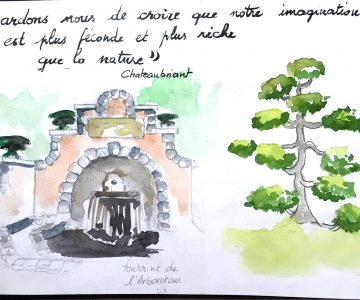 ardons nous de croire que notre imagination
est plus féconde et plus riche
que la nature"
Chateaubriant
fontaine de
l'Arboretum